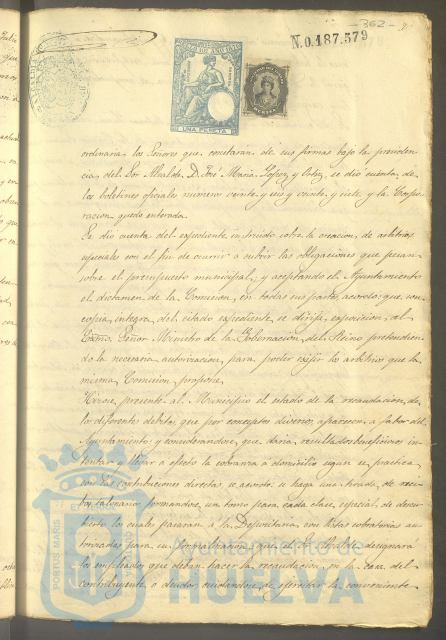 362
N.0.187.579
AÑO 1876
UNA PESETA
ordinaria los Señores que constarán de sus firmas bajo la presiden
cia del Sor Alcalde D. José Maria Lopez y se dió cuenta de
los boletines oficiales número veinte y seis y veinte y siete y la Corpo
racion quedó enterada.
Se dió cuenta del expediente instruido sobre la creacion de arbitrios
especiales con el fin de ocurrir a cubrir las obligaciones que pesan
sobre el presupuesto municipal, y aceptando el Ayuntamiento
el dictamen de la Comision, en todas sus partes, acordó: que con
copia íntegra del citado expediente se dirija exposicion al
Excmo. Señor Ministro de la Gobernacion del Reino pretendien
do la necesaria autorizacion para poder exijir los arbitrios que la
misma Comision propone.
Hízose presente al Municipio el estado de la recaudacion de
los diferentes débitos que por conceptos diversos aparecen a favor del
Ayuntamiento; y considerándose que daria resultados beneficiosos in
tentar y llevar a efecto la cobranza a domicilio segun se practica
con las contribuciones directas se acordó: se haga una tirada de reci
bos talonarios formandose un tomo para cada clase especial de descu
bierto los cuales pasarán a la Depositaria con listas cobratorias au
torizadas para su formalizacion y que el Sr Alcalde designará
los empleados que deban hacer la recaudacion en la casa del
contribuyente o deudor cuidandose de ejercitar la conveniente
PORTUS MARIS
Ayuntamiento de
HUELVA